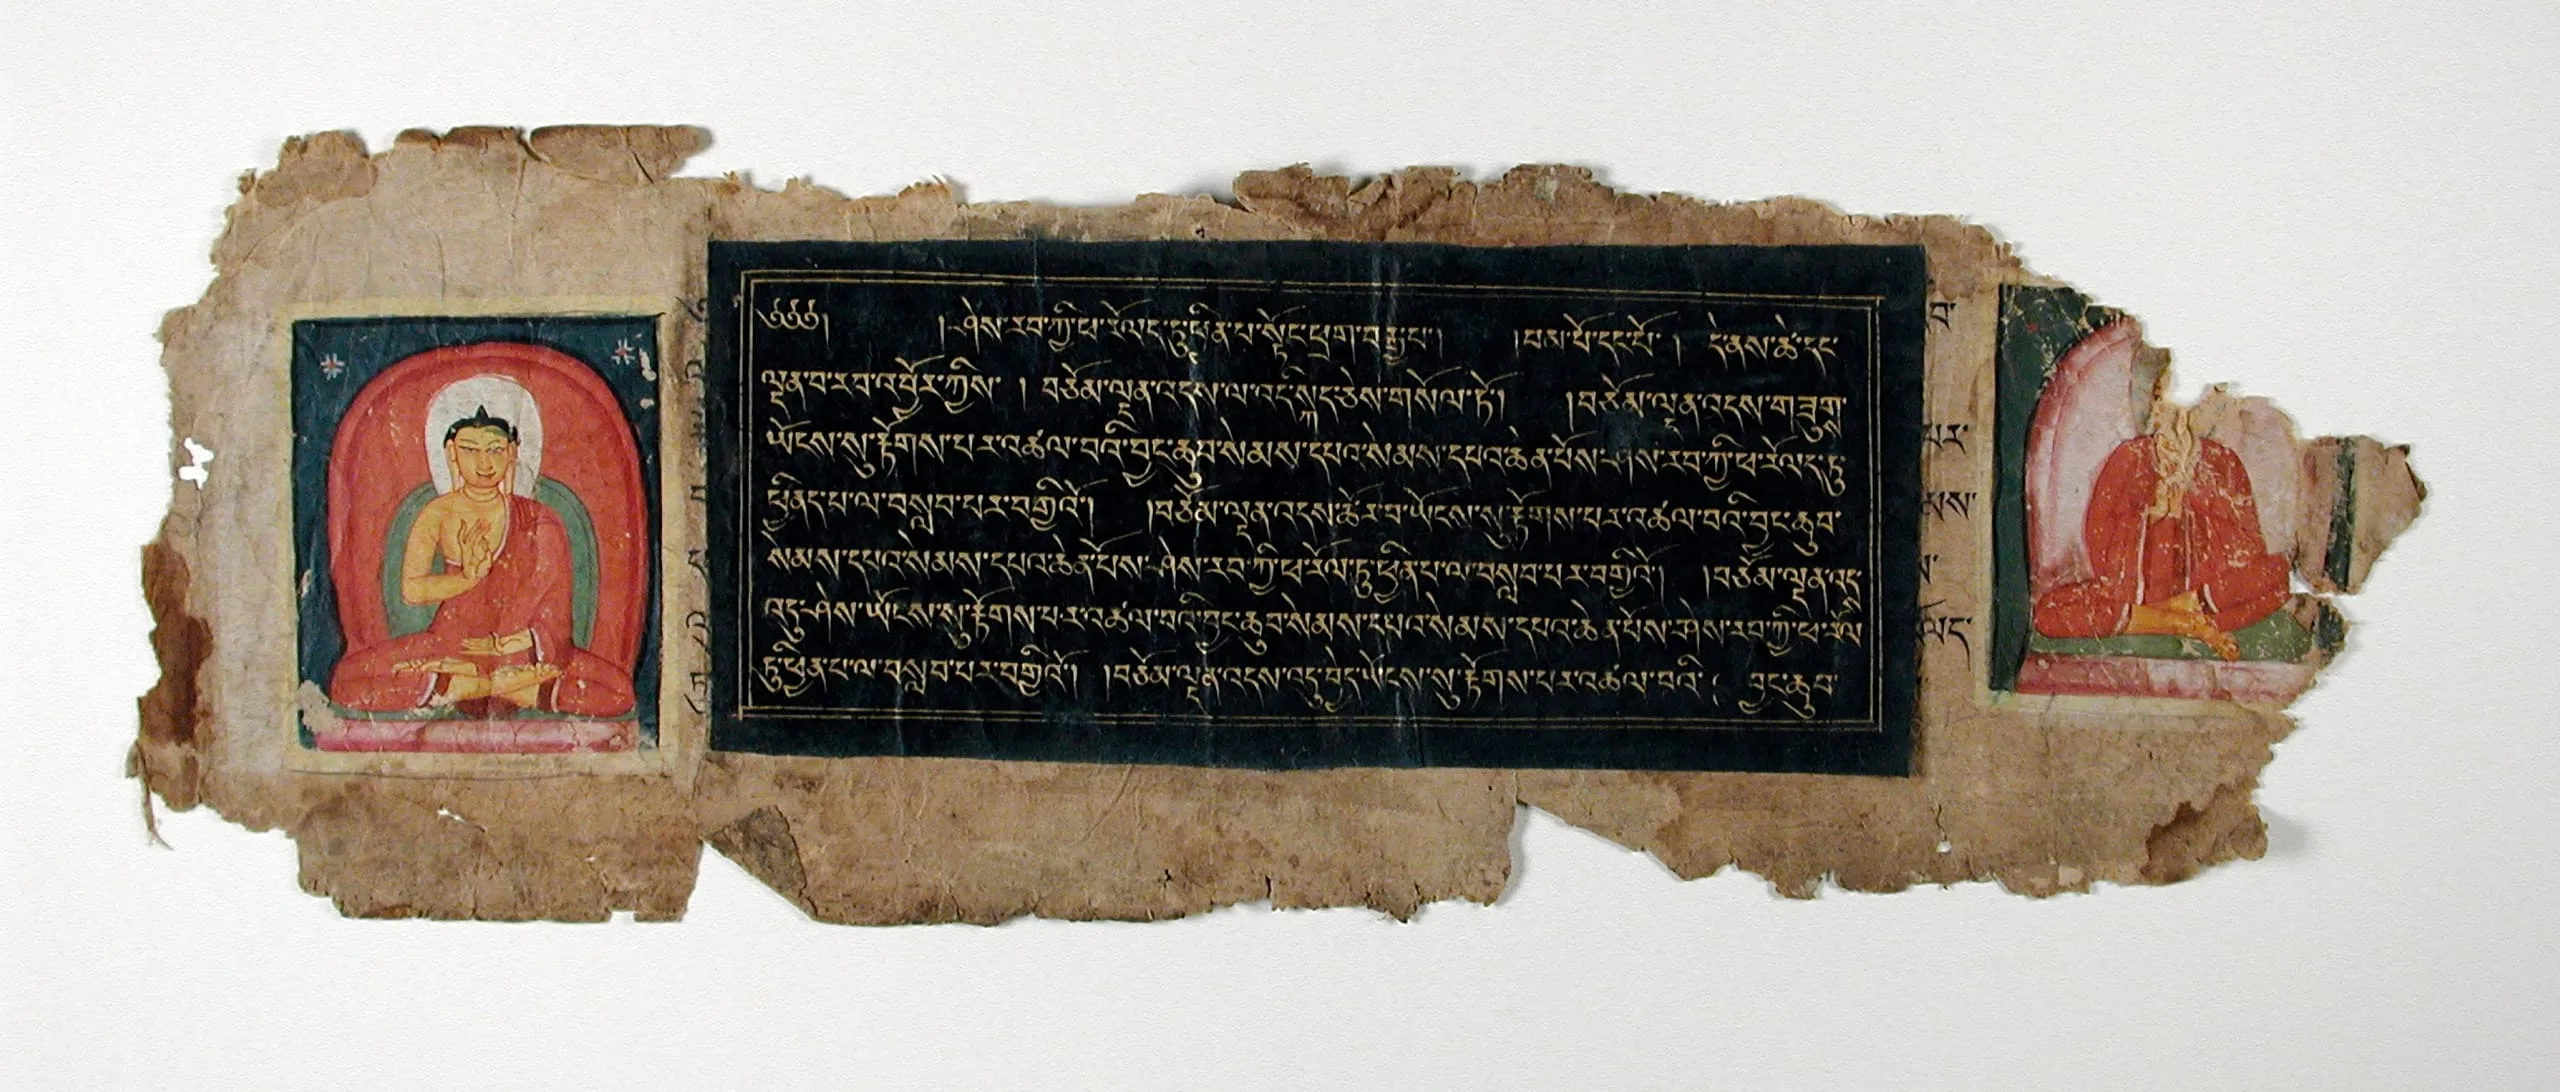 ༄༄༄། །ཤེས་རབ་ཀྱི་ཕ་རོལད་ཏུ་ཕྱིན་པ་སྟོང་ཕྲག་བརྒྱཔ། །བམ་པོ་དང་པོ་། དེ་ནས་ཚེ་དང་
ལྡན་བ་རབ་འབྱོར་ཀྱིས་ །བཅོམ་ལྡན་འདས་ལ་འདི་སྐད་ཅེས་གསོལ་ཏོ། །བཅོམ་ལྡན་འདས་གཟུགས་
ཡོངས་སུ་རྟོགས་པར་འཚལ་བའི་བྱང་ཆུབ་སེམས་དཔའ་སེམས་དཔའ་ཆེན་པོས་ཤེས་རབ་ཀྱི་ཕ་རོལད་ཏུ་
ཕྱིནད་པ་ལ་བསླབ་པར་བགྱིའོ། །བཅོམ་ལྡན་འདས་ཚོར་བ་ཡོངས་སུ་རྟོགས་པར་འཚལ་བའི་བྱང་ཆུབ་
སེམས་དཔའ་སེམས་དཔའ་ཆེན་པོས་ཤེས་རབ་ཀྱི་ཕ་རོལ་ཏུ་ཕྱིན་པ་ལ་བསླབ་པར་བགྱིའོ། །བཅོམ་ལྡན་འདས་
འདུ་ཤེས་ཡོངས་སུ་རྟོགས་པར་འཚལ་བའི་བྱང་ཆུབ་སེམས་དཔའ་སེམས་དཔའ་ཆེན་པོས་ཤེས་རབ་ཀྱི་ཕ་རོལ་
ཏུ་ཕྱིན་པ་ལ་བསླབ་པར་བགྱིའོ། །བཅོམ་ལྡན་འདས་འདུ་བྱེད་ཡོངས་སུ་རྟོགས་པར་འཚལ་བའི་ བྱང་ཆུབ་